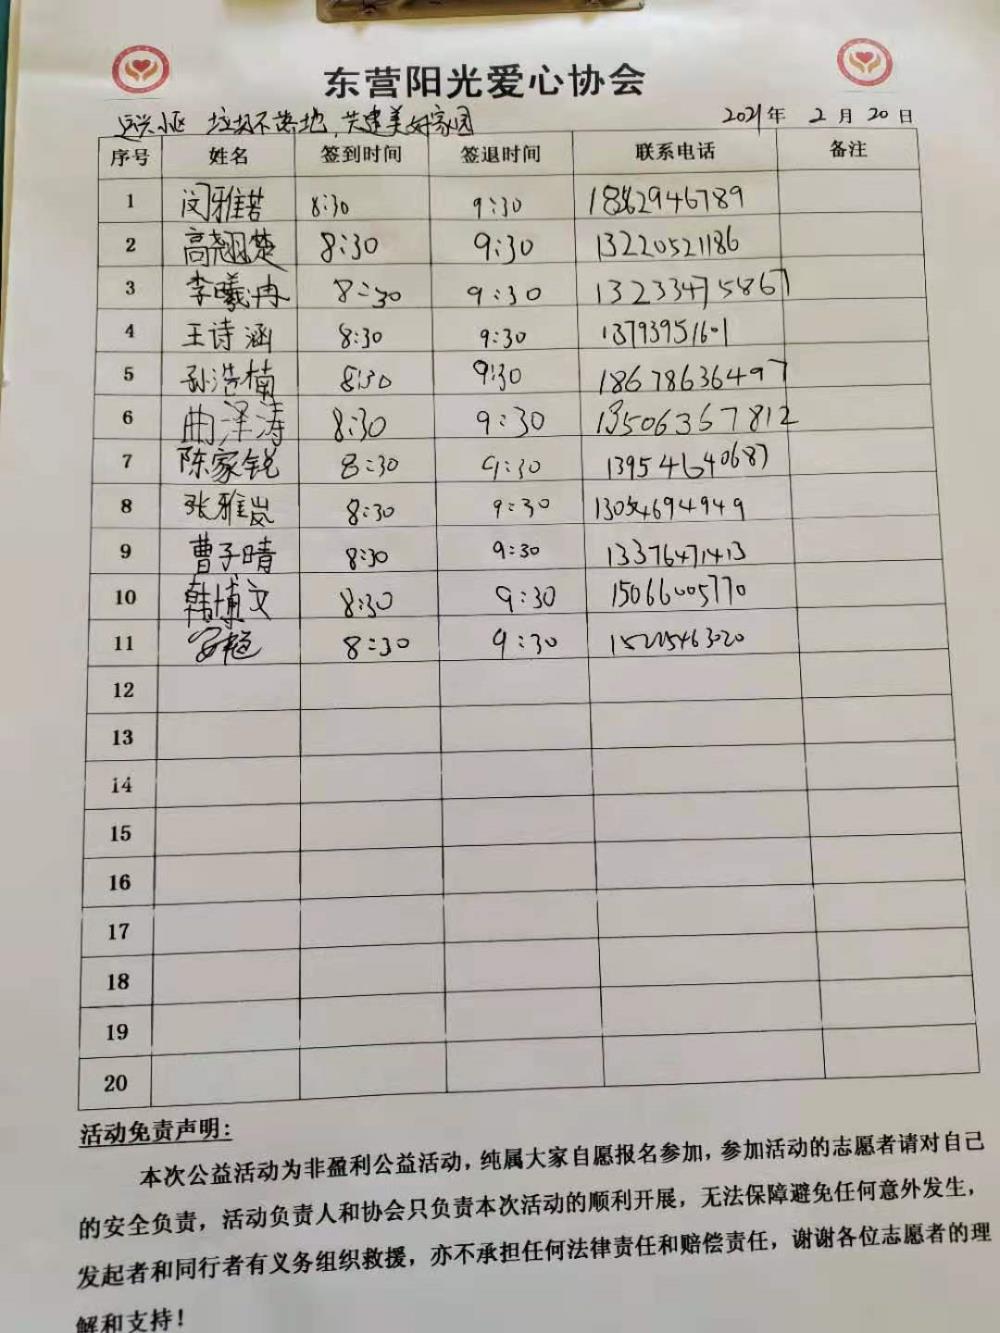 东营阳光爱心协会
远兴小区 垃圾不落地,共建美好家园 2021年 2月20日
序号 姓名 签到时间 签退时间 联系电话 备注
1 闵雅若 8:30 9:30
2 高翘楚 8:30 9:30 13220521186
3 李曦冉 8:30 9:30 13233475867
4 王诗涵 8:30 9:30 13793951601
5 孙浩楠 8:30 9:30 18678636497
6 曲泽涛 8:30 9:30 13506367812
7 陈家锐 8:30 9:30 13954640687
8 张雅岚 8:30 9:30 13054694949
9 曹子晴 8:30 9:30 13376471413
10 韩博文 8:30 9:30 15066005770
11 安艳 8:30 9:30
12
13
14
15
16
17
18
19
20
活动免责声明:
本次公益活动为非盈利公益活动,纯属大家自愿报名参加,参加活动的志愿者请对自己
的安全负责,活动负责人和协会只负责本次活动的顺利开展,无法保障避免任何意外发生,
发起者和同行者有义务组织救援,亦不承担任何法律责任和赔偿责任,谢谢各位志愿者的理
解和支持!